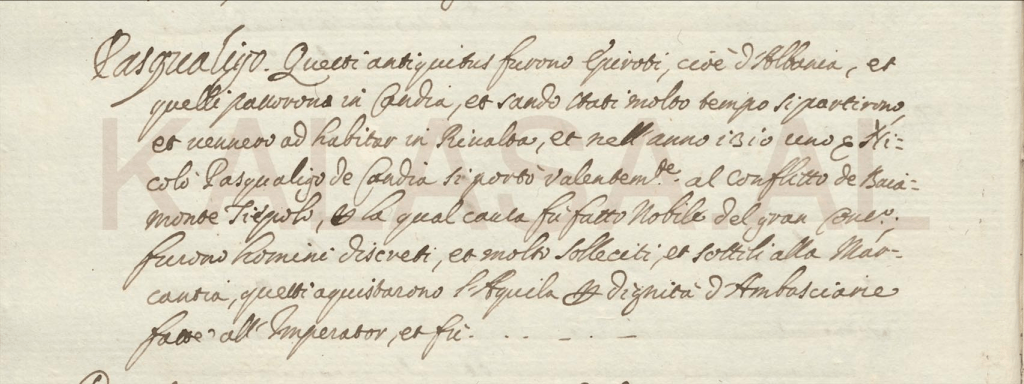 Pasqualigo. Questi antiquitus furono Epiroti, cioè d'Albania, et
quelli passorono in Candia, et sando stati molto tempo si partirono,
et vennero ad habitar in Rivalta, et nell'anno 1310 uno Ni=
colò Pasqualigo de Candia si portò valentem.te al conflitto de Baia=
monte Tiepolo, la qual causa fù fatto Nobile del gran
furono homini discreti, et molto solleciti, et sottili alla Mar=
cantia, questi aquistarono l'Aquila dignità d'Ambasciarie
fatte all'Imperator, et fù. . . _ . _
KALASA.AL